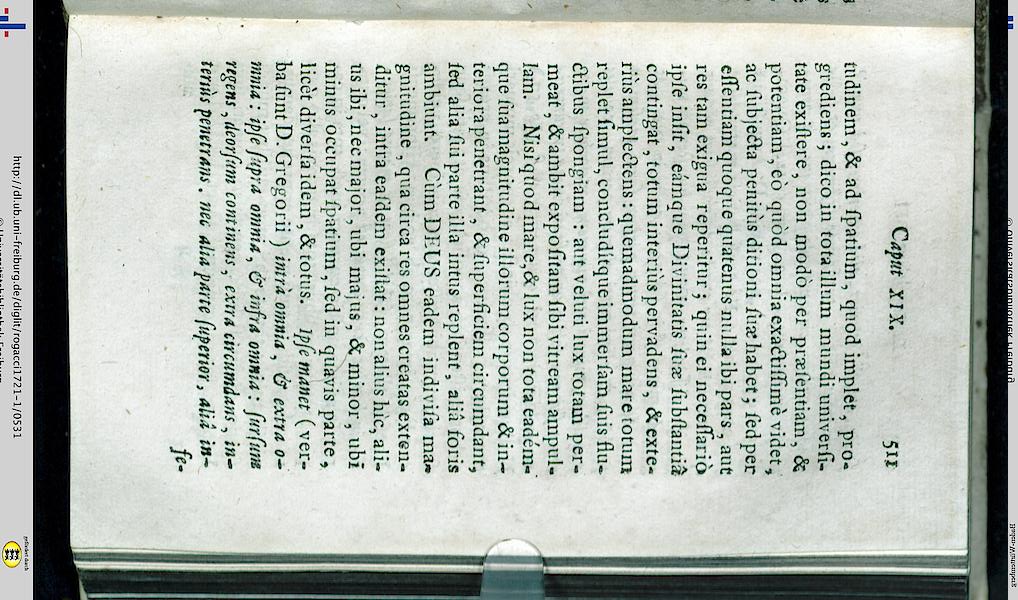 Caput XIX. 511
tudinem, & ad ſpatium, quod implet, pro-
grediens; dico in tota illum mundi univerſi-
tate exiſtere, non modò per præſentiam, &
potentiam, eò quòd omnia exactiſſimè videt,
ac ſubjecta penitùs ditioni ſuæ habet; ſed per
eſſentiam quoque quatenus nulla ibi pars, aut
res tam exigua reperitur; quin ei neceſſariò
ipſe inſit, eámque Divinitatis ſuæ ſubſtantiâ
contingat, totum interiùs pervadens, & exte-
riùs amplectens: quemadmodum mare totum
replet ſimul, concluditque immerſam ſuis flu-
ctibus ſpongiam: aut veluti lux totam per-
meat, & ambit expoſitam ſibi vitream ampul-
lam. Niſi quod mare, & lux non tota eadém-
que ſua magnitudine illorum corporum & in-
teriora penetrant, & ſuperficiem circumdant,
ſed alia ſui parte illa intus replent, aliâ foris
ambiunt. Cùm DEUS eadem indiviſa ma-
gnitudine, qua circa res omnes creatas exten-
ditur, intra eaſdem exiſtat: non alius hic, ali-
us ibi, nec major, ubi majus, & minor, ubi
minus occupat ſpatium, ſed in quavis parte,
licèt diverſa idem, & totus. Ipſe manet (ver-
ba ſunt D. Gregorii) intra omnia, & extra o-
mnia: ipſe ſupra omnia, & infra omnia: ſurſum
regens, deorſum continens, extra circumdans, in-
teriùs penetrans. nec alia parte ſuperior, aliâ in-
fe-
http://dl.ub.uni-freiburg.de/diglit/rogacci1721-1/0531
gefördert durch